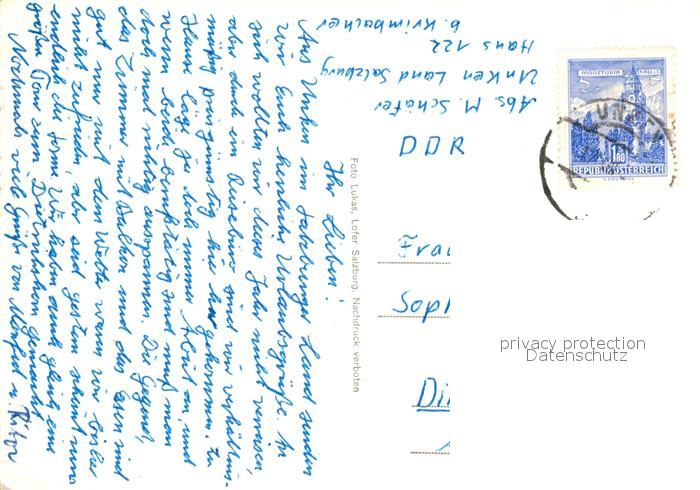 Ihr Lieben!
Aus Unken im Salzburger Land senden
wir Euch herzliche Urlaubsgrüße. An
sich wollten wir dieses Jahr nicht verreisen,
aber durch ein Reisebüro sind wir verhältnis-
mäßig preisgünstig hier her gekommen. Zu
Hause liegt ja doch immer Arbeit an, und
wenn beide berufstätig sind muß man
doch mal richtig ausspannen. Die Gegend,
das Zimmer mit Balkon und das Essen sind
gut nur mit dem Wetter waren wir bisher
nicht zufrieden, aber seit gestern scheint nun
endlich die Sonne. Wir haben auch gleich eine
große Tour zum Dietrichshorn gemacht.
Nochmals viele Grüße von Manfred u.
Foto Lukas, Lofer Salzburg. Nachdruck verboten
Abs. M. Schäfer
Unken Land Salzburg
Haus 122
b. Krimbacher
MÜNZTURM HALL I. T.
1.80
REPUBLIK ÖSTERREICH
UNKEN
DDR
Frau
Soph
privacy protection
Datenschutz